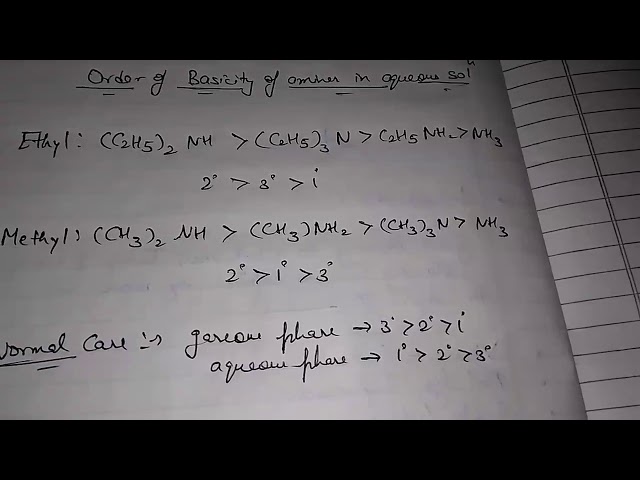 Order of Basicity of amines in aqueous solⁿ
Ethyl: (C2H5)2 NH > (C2H5)3 N > C2H5 NH2 > NH3
2° > 3° > 1°
Methyl: (CH3)2 NH > (CH3)NH2 > (CH3)3N > NH3
2° > 1° > 3°
Normal Case :→ gaseous phase → 3° > 2° > 1°
aqueous phase → 1° > 2° > 3°